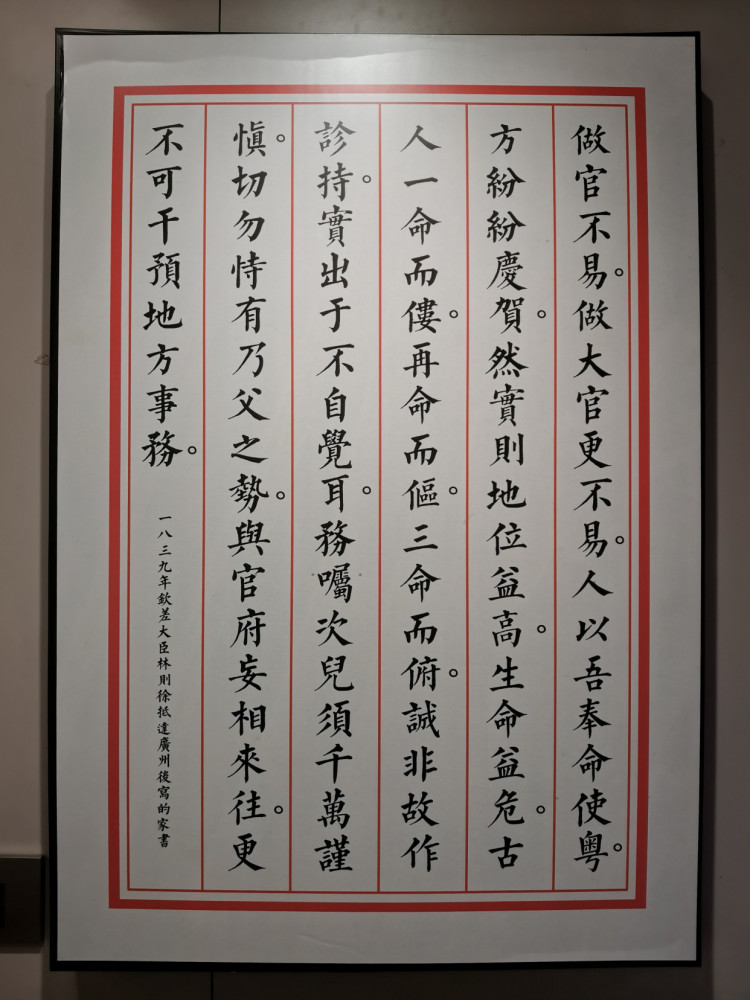 做官不易。做大官更不易。人以吾奉命使粵。
方紛紛慶賀。然實則地位益高。生命益危。古
人一命而僂。再命而傴。三命而俯。誠非故作
診持。實出于不自覺耳。務囑次兒須千萬謹
慎。切勿恃有乃父之勢。與官府妄相來往。更
不可干預地方事務。
一八三九年欽差大臣林則徐抵達廣州後寫的家書